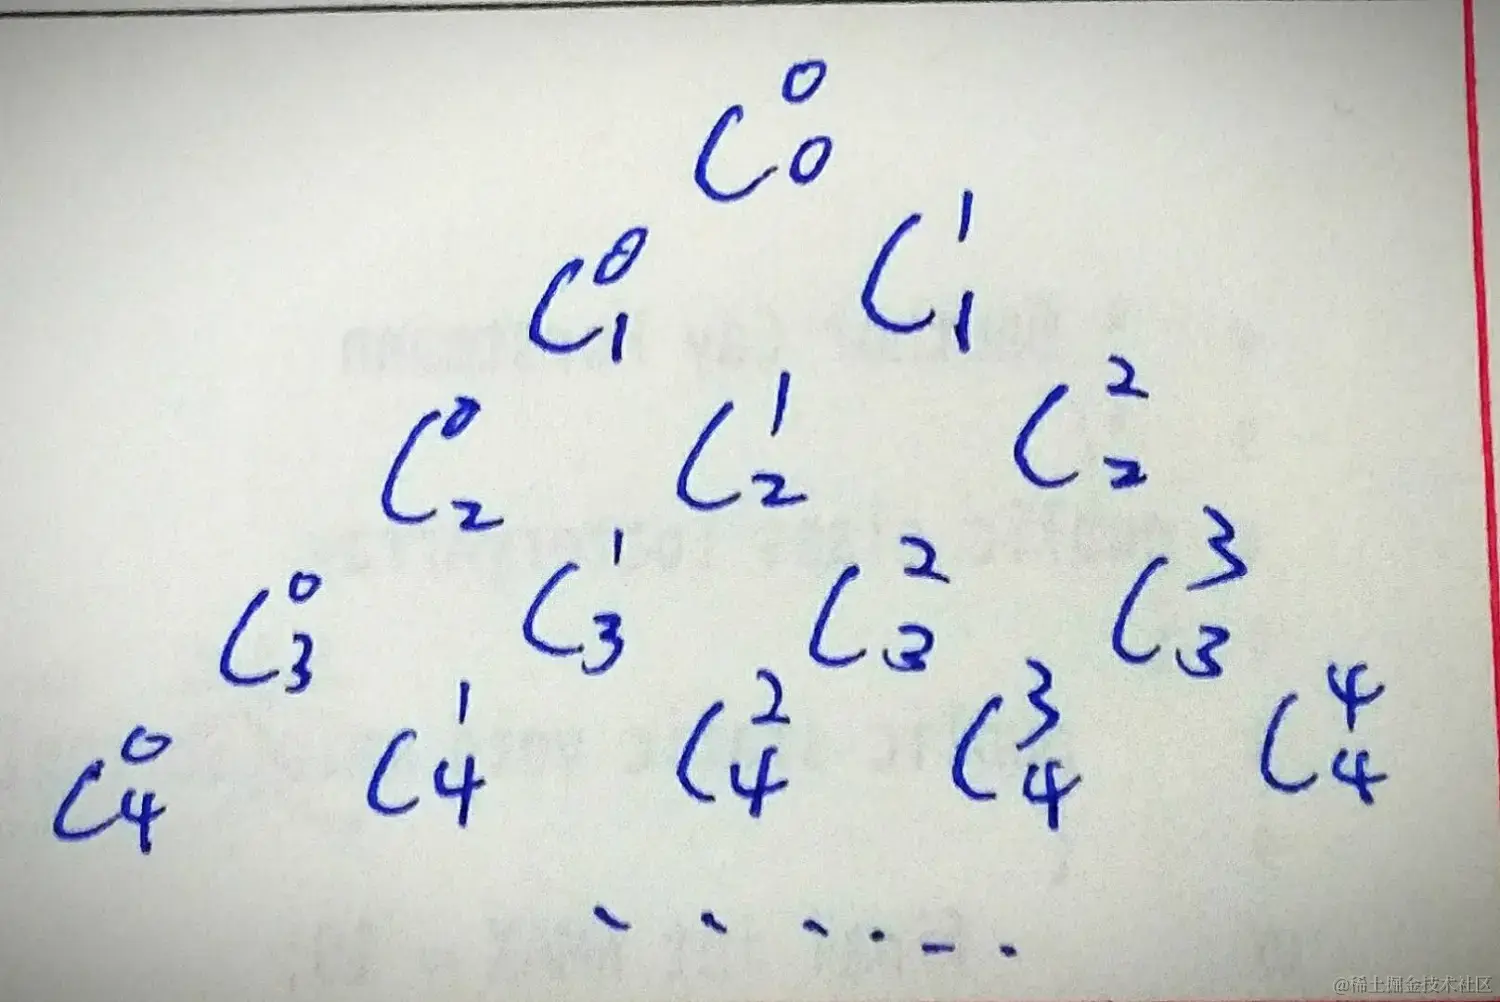 C₀⁰
C₁⁰ C₁¹
C₂⁰ C₂¹ C₂²
C₃⁰ C₃¹ C₃² C₃³
C₄⁰ C₄¹ C₄² C₄³ C₄⁴
......
@稀土掘金技术社区